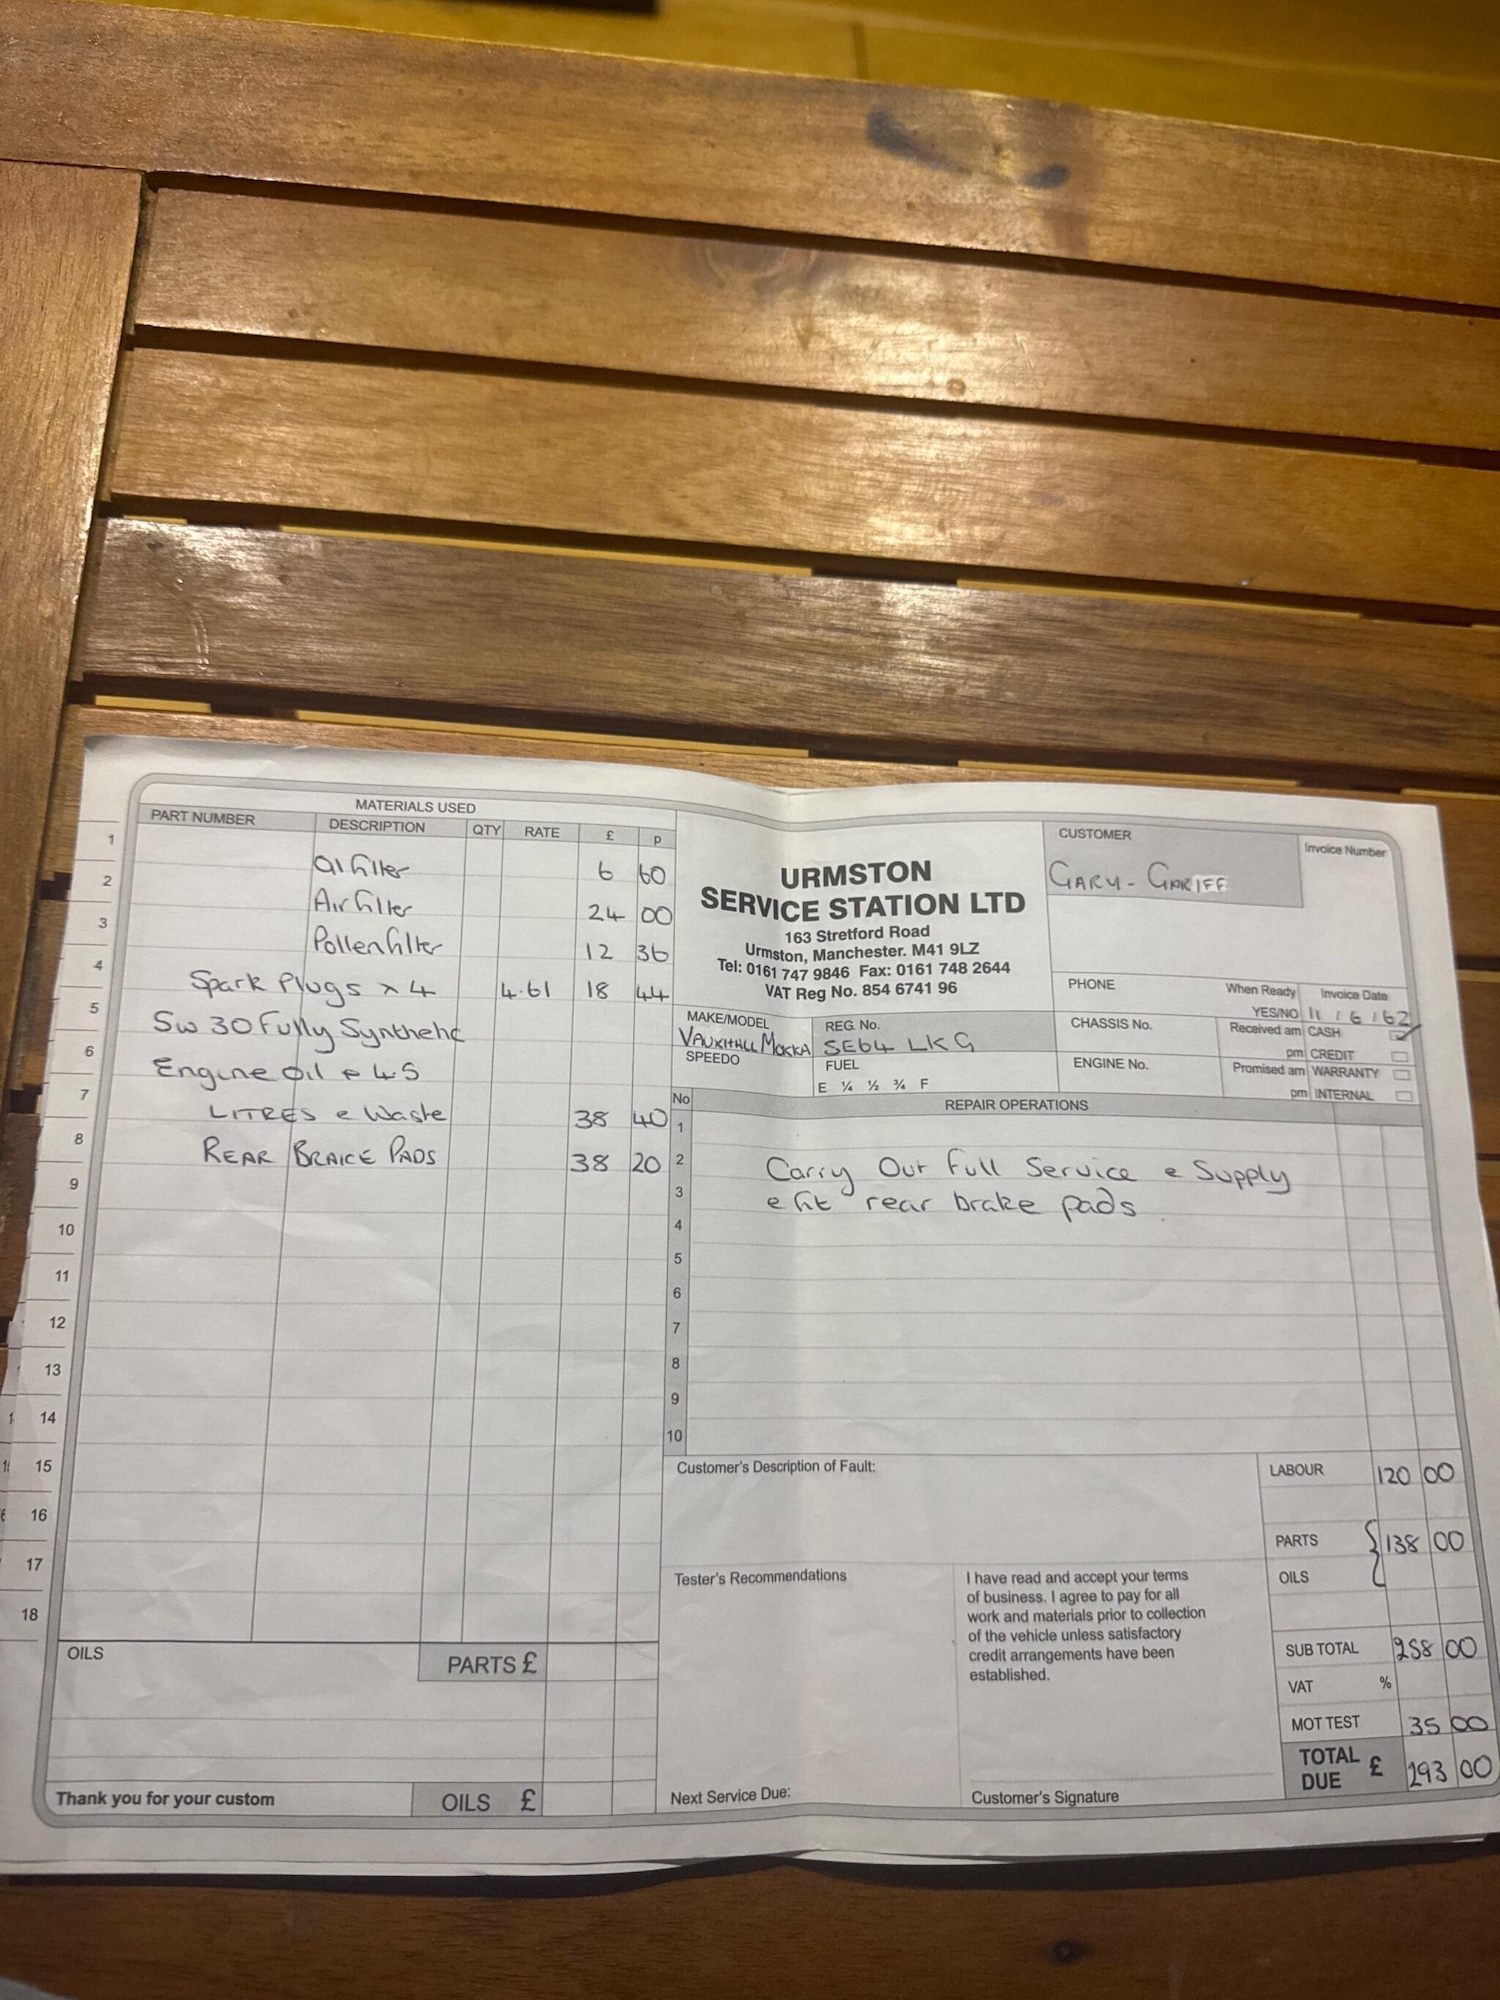 MATERIALS USED
PART NUMBER DESCRIPTION QTY RATE £ p
1
2
3
4
5
6
7
8
9
10
11
12
13
14
15
16
17
18
Oil filter 6 60
Air filter 24 00
Pollen filter 12 36
Spark Plugs x 4 4.61 18 44
5w 30 Fully Synthetic
Engine oil e 4.5
LITRES e Waste 38 40
REAR BRAKE PADS 38 20
OILS
PARTS £
Thank you for your custom
OILS £
URMSTON
SERVICE STATION LTD
163 Stretford Road
Urmston, Manchester. M41 9LZ
Tel: 0161 747 9846 Fax: 0161 748 2644
VAT Reg No. 854 6741 96
CUSTOMER
GARY - GRRIFF
Invoice Number
PHONE
When Ready
Invoice Date
YES/NO 11 / 6 / 62
MAKE/MODEL
VAUXHALL MOKKA
REG. No.
SE64 LKG
CHASSIS No.
Received am CASH
pm CREDIT
SPEEDO
FUEL
E ¼ ½ ¾ F
ENGINE No.
Promised am WARRANTY
pm INTERNAL
No
REPAIR OPERATIONS
1
2
3
4
5
6
7
8
9
10
Carry Out Full Service e Supply
e fit rear brake pads.
Customer's Description of Fault:
Tester's Recommendations
I have read and accept your terms
of business. I agree to pay for all
work and materials prior to collection
of the vehicle unless satisfactory
credit arrangements have been
established.
Next Service Due:
Customer's Signature
LABOUR 120 00
PARTS 138 00
OILS
SUB TOTAL 258 00
VAT %
MOT TEST 35 00
TOTAL
DUE £ 293 00